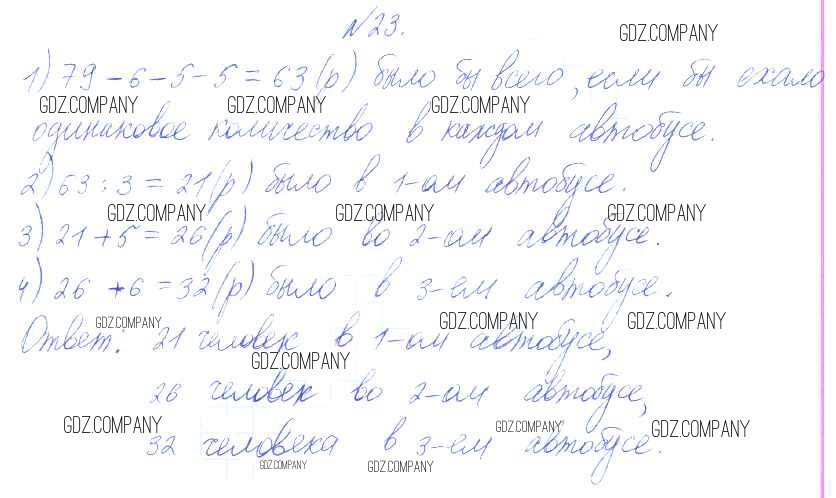 №23.
GDZ.COMPANY
1) 79 - 6 - 5 - 5 = 63 (р) было бы всего, если бы ехало
GDZ.COMPANY GDZ.COMPANY GDZ.COMPANY
одинаковое количество в каждом автобусе.
2) 63 : 3 = 21 (р) было в 1-ом автобусе.
GDZ.COMPANY GDZ.COMPANY GDZ.COMPANY
3) 21 + 5 = 26 (р) было во 2-ом автобусе.
4) 26 + 6 = 32 (р) было в 3-ем автобусе.
GDZ.COMPANY GDZ.COMPANY GDZ.COMPANY
Ответ: 21 человек в 1-ом автобусе,
GDZ.COMPANY
26 человек во 2-ом автобусе,
GDZ.COMPANY GDZ.COMPANY GDZ.COMPANY
32 человека в 3-ем автобусе.
GDZ.COMPANY GDZ.COMPANY